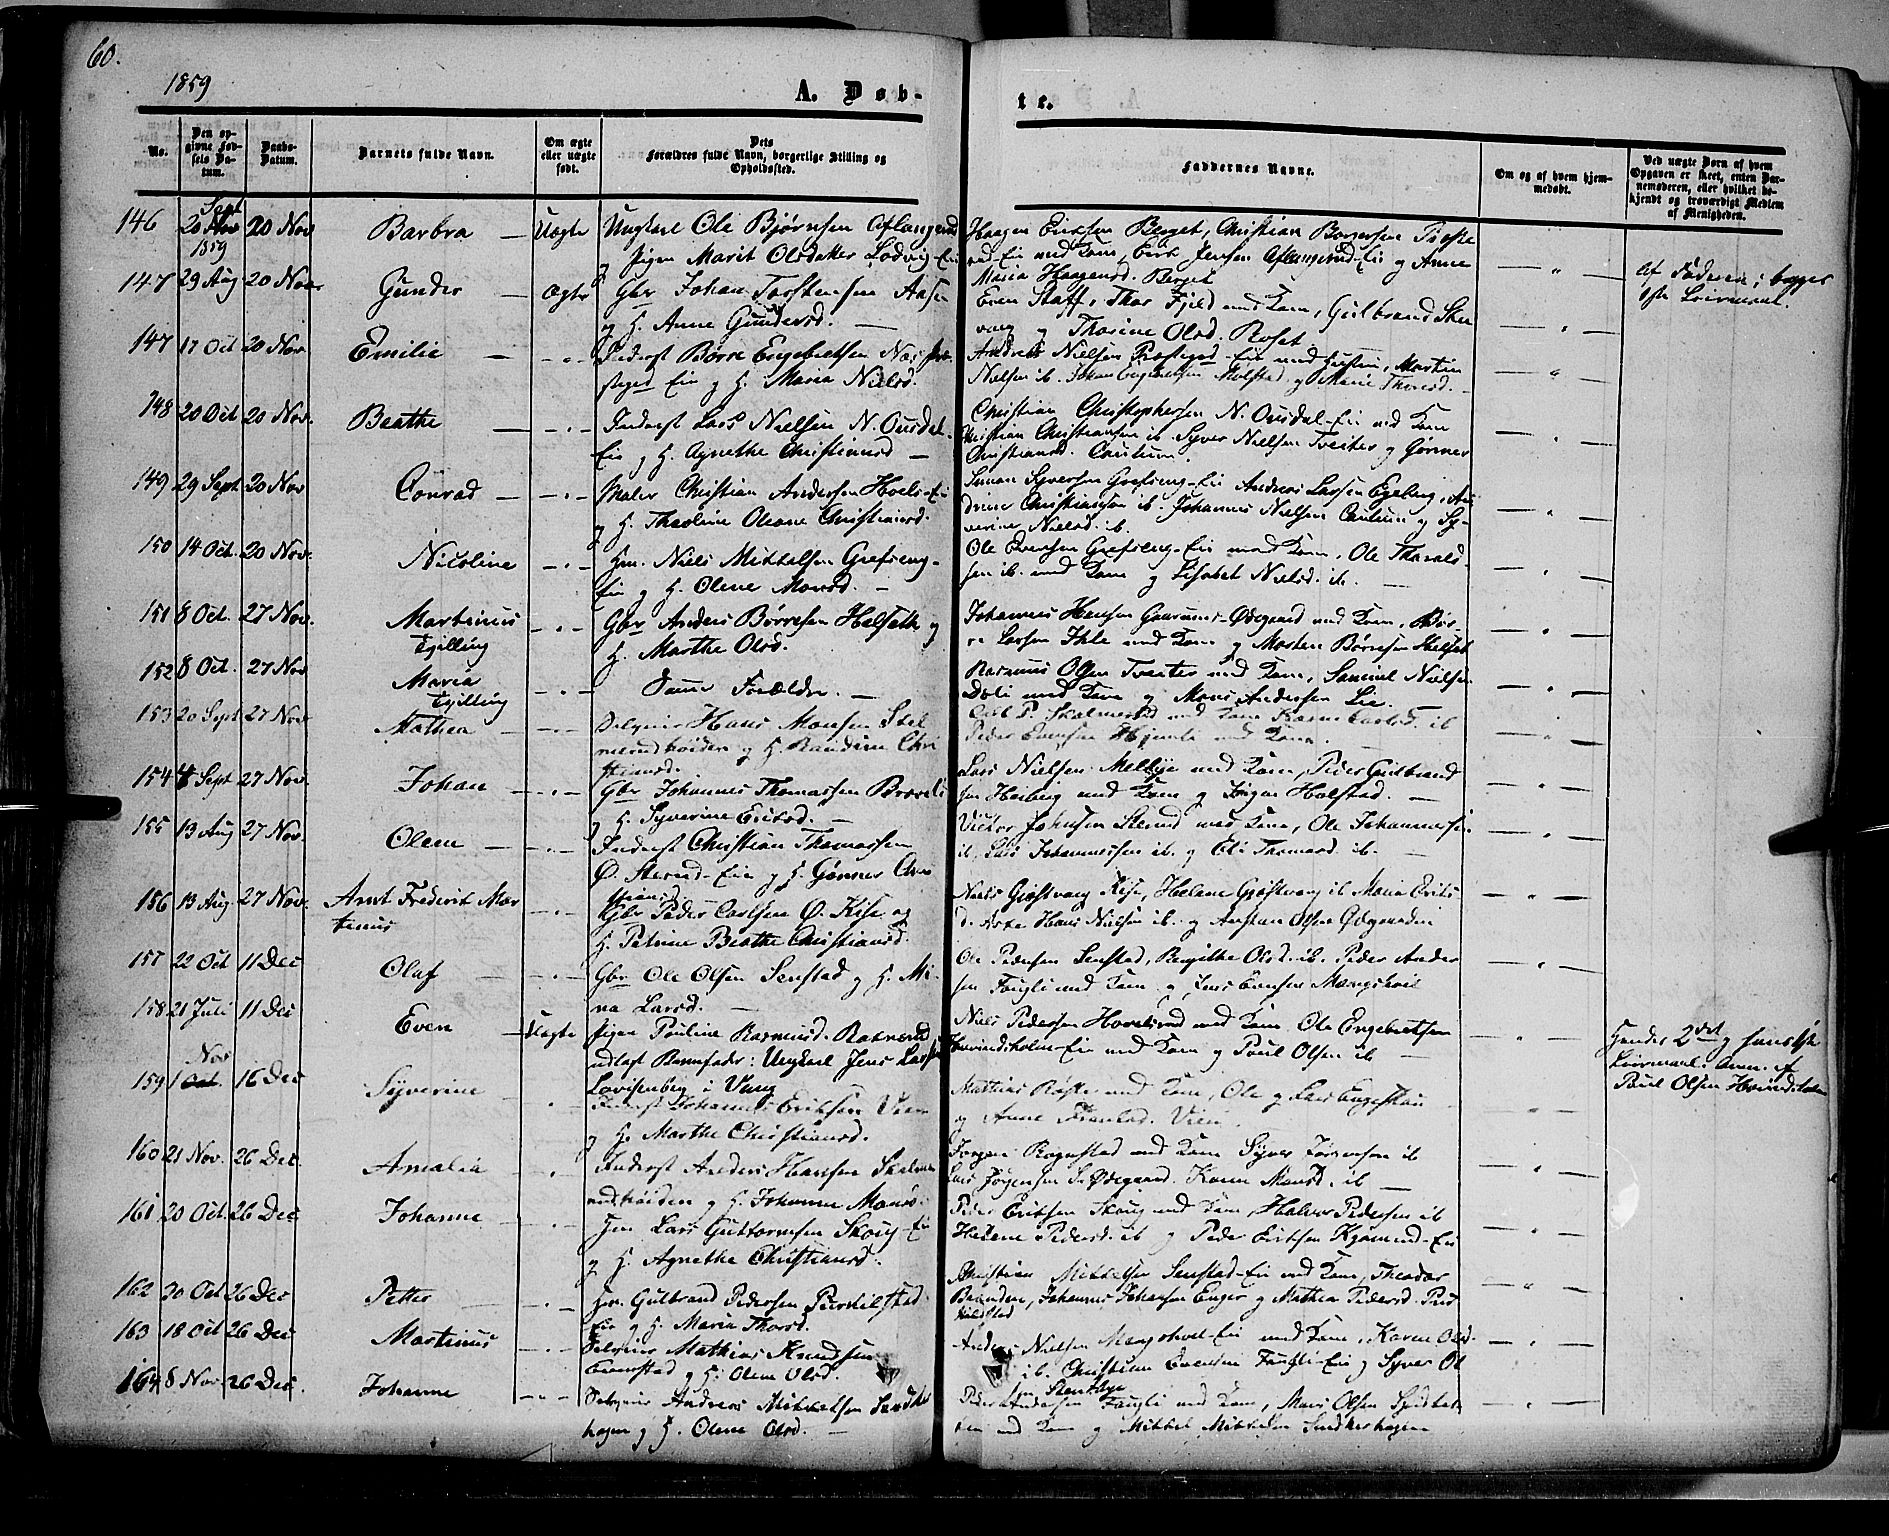 60.
1859
A. Døb-
te.
No.
Den op-
givne Fød-
sels Da-
tum.
Daabs-
Datum.
Barnets fulde Navn.
Om ægte
eller uægte
født.
Dets
Forældres fulde Navn, borgerlige Stilling og
Opholdssted.
Faddernes Navne.
Om og af hvem hjem-
medøbt.
Ved uægte Børn af hvem
Opgaven er skeet, enten Bar-
nemoderen, eller hvilket be-
kjendt og troværdigt Medlem
af Menigheden.
146 20 Sept 1859 20 Nov Barbra — Uægte Ungkarl Ole Bjørnsen Aflangerud
og Pigen Marit Olsdatter Lodvig-Eie
Haagen Ericksen Berget, Christian Borgersen
Eie med Kone, Erik Jensen Aflangerud-Eie og Anne
Maria Haagensd. Berget
Af Faderen; begges
1ste Leiermaal.
147 29 Aug 20 Nov Gunder — Ægte Gbr Johan Torstensen Aase
og H. Anne Gundersd. —
Even Staff, Thor Fjeld med Kone, Gulbrand
og Thorine Olsd. Roset
147 17 Oct 20 Nov Emilie — " — Inderst Børre Engebretsen Næs Præ-
steged Eie og H. Maria Nielsd.
Andreas Nielsen Præstegad-Eie med Hustru, Martin
Nielsen ib. Johan Engebretsen Mølstad og Marie Thoresd.
148 20 Oct 20 Nov. Beathe — " — Inderst Lars Nielsen N. Ousdal-
Eie og H. Agnethe Christiansd —
Christian Christophersen N. Ousdal-Eie med Kone
Christian Christiansen ib. Syver Nielsen Tveiter og Gønner
Christiansd.
149 29 Sept 20 Nov Conrad — " — Maler Christian Andersen Hoels-Eie
og H. Theoline Oleane Christiansd.
Simen Syversen Grefseng-Eie Andreas Larsen Egeberg,
Christiansen ib. Johannes Nielsen og Sy-
verine Nielsd. ib
150 14 Oct. 20 Nov. Nicoline — " — Hm. Niels Mikkelsen Grefseng-
Eie og H. Olene Monsd. —
Ole Evensen Grefseng-Eie med Kone, Ole Thorvald-
sen ib. med Kone og Lisabet Nielsd. ib.
151 8 Oct. 27 Nov. Martinus
Tvilling — " — Gbr Anders Børresen Halseth og
H. Marthe Olsd.
Johannes Hansen Ødegaard med Kone, Bør-
re Larsen Ihle med Kone og Morten Børresen Helset
152 8 Oct. 27 Nov Maria
Tvilling — " — Samme Forældre. —
Rasmus Olsen Tveiter med Kone, Samuel Nielsen
Dæli med Kone og Mons Andersen Lie.
153 20 Sept 27 Nov Mathea — " — Selveier Hans Monsen Skel-
merudhøiden og H. Randine Chri
stiansd.
Carl P. Skolmerud med Kone ib
Peder Evensen med Kone.
154 4 Sept 27 Nov. Johan — " — Gbr Johannes Thomassen Brøveli
og H. Syverine Eriksd. —
Lars Nielsen Melbye med Kone, Peder Gulbrand
sen Heiberg med Kone og Jørgen Holstad. —
155 13 Aug 27 Nov. Olene — " — Inderst Christian Thomassen
Ø. Sterud-Eie og H. Gønner Chri
stiansd
Victor Johnsen Sterud med Kone, Ole Johannesen
ib, Lars Johannessen ib. og Oli Thomasd. ib. —
156 13 Aug 27 Nov. Arnt Frederik Mar
tinus — " — Gbr Peder Carlsen Ø. Kise og
H. Petrine Beathe Christiansd.
Niels Gjøstvang Kise, Helene Gjøstvang ib Maria Eriks
d. Hans Nielsen ib. og Olsen Ødegaarden
157 22 Oct 11 Dec Olaf — " — Gbr Ole Olsen Senstad og H. Mi-
na Larsd. —
Ole Pedersen Senstad, Bergithe Olsd. ib. Peder Ander
sen Fougli med Kone og Jens Evensen Mangshoel
158 21 Juli 11 Dec Even — Uægte Pigen Pauline Rasmusd.
udlagt Barnefader: Ungkarl Jens Larsen
Lovisenberg i Vang
Niels Pedersen Hovelsrud med Kone, Ole Engebretsen
Hovindsholm-Eie med Kone og Poul Olsen ib —
Hendes 2det og hans 1ste
Leiermaal. Anm. af
Poul Olsen Hovindsholm
159 1 Nov 16 Dec Syverine — " Inderst Johannes Eriksen Vien
og H. Marthe Christiansd.
Mathias Røste med Kone, Ole og Lars Engestau
og Anne Vien.
160 21 Nov. 26 Dec. Amalia — " Inderst Anders Hansen Skelme-
rudhøiden og H. Johanne Monsd.
Jørgen Rognstad med Kone Syver Jørgensen ib
Lars Jørgensen S. Ødegaard. Karen Monsd. ib —
161 20 Oct. 26 Dec Johanne — " — Hm Lars Guttormsen Skoug-Eie
og H. Agnethe Christiansd.
Peder Eriksen Skoug med Kone, Halvor Pedersen ib
Helene Pedersd. ib og Peder Eriksen Kjømerud-Eie
162 20 Oct 26 Dec Petter — " — Hm. Gulbrand Pedersen
Eie og H. Maria Thorsd.
Christian Mikkelsen Senstad-Eie med Kone, Theodor
Brænden, Johannes Johansen Enger og Mathea Pedersd.
163 18 Oct 26 Dec Martinus — " — Selveier Mathias Knudsen
Evenstad og H. Olene Olsd.
Anders Nielsen Mangshoel-Eie med Kone, Karen Olsd.
ib. Christian Evensen Fougli-Eie og Syver Ol
sen
164 8 Nov. 26 Dec. Johanne — " — Selveier Andreas Mikkelsen
hagen og H. Olene Olsd. —
Peder Andersen Fougli med Kone, Mons Olsen
med Kone og Mikkel Mikkelsen